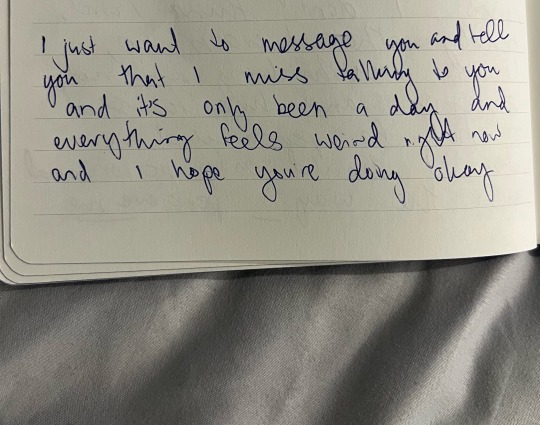 I just want to message you and tell
you that I miss talking to you
and it's only been a day and
everything feels weird right now
and I hope you're doing okay